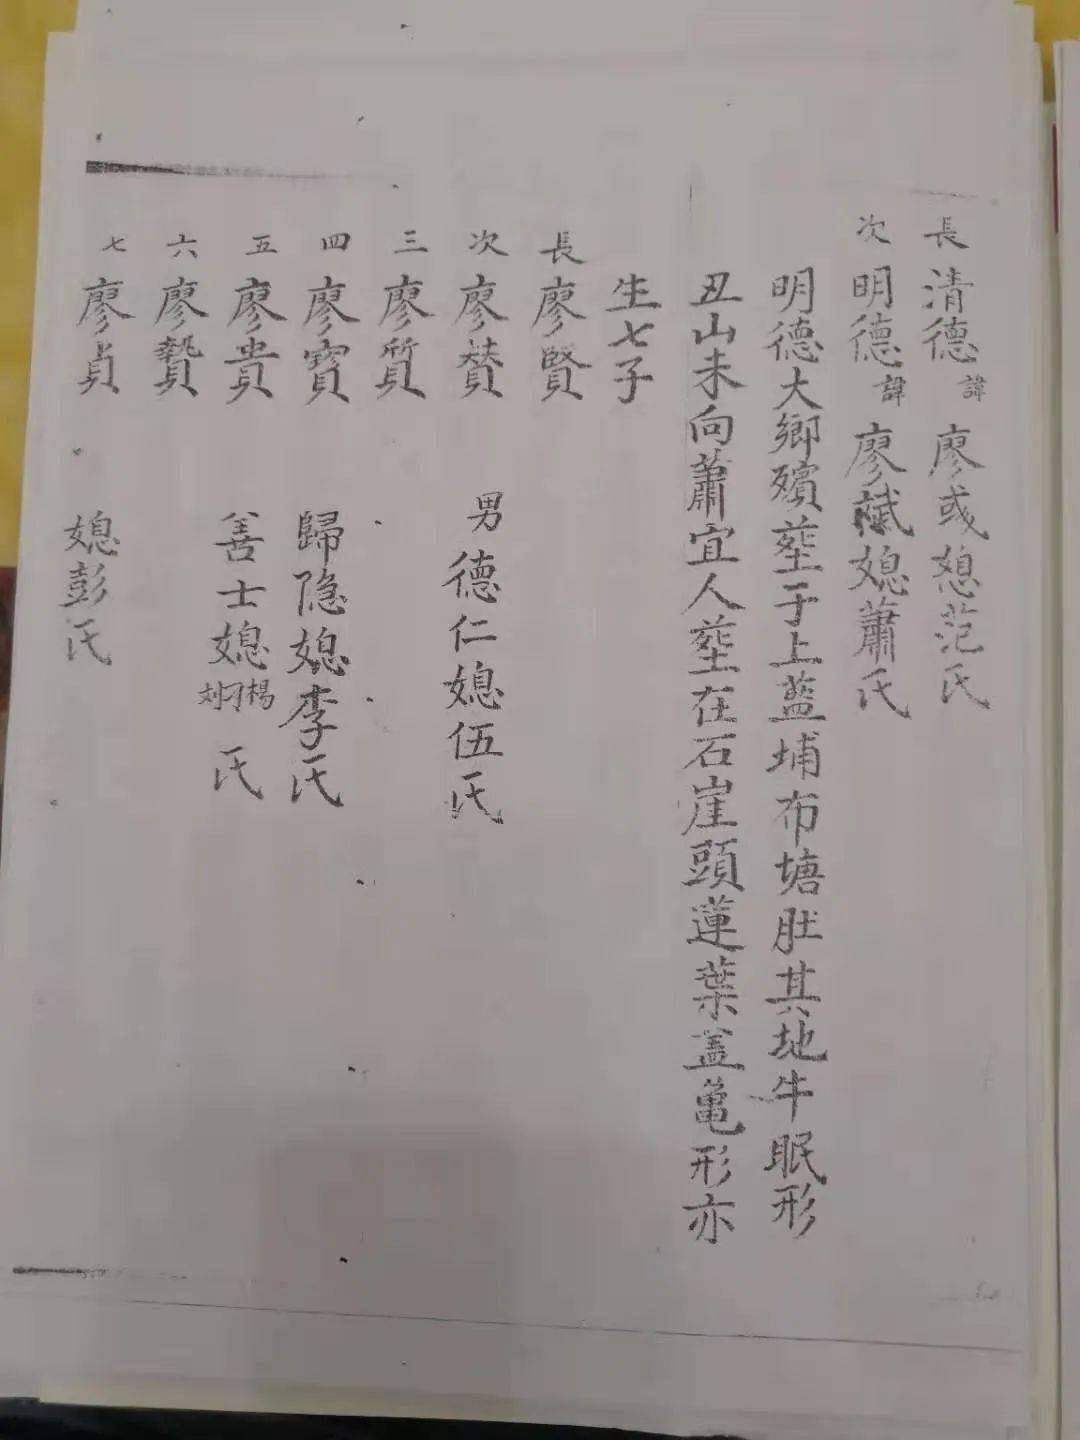 長 清德諱 廖彧媳范氏
次 明德諱 廖斌媳蕭氏
明德大鄉殯塟于上藍埔布塘肚其地牛眠形
丑山未向蕭宜人塟在石崖頭蓮葉盖龜形亦
生七子
長 廖賢
次 廖賛 男德仁媳伍氏
三 廖質
四 廖寳 歸隐媳李氏
五 廖貴 善士媳楊刁刘氏
六 廖贄
七 廖貞 媳彭氏